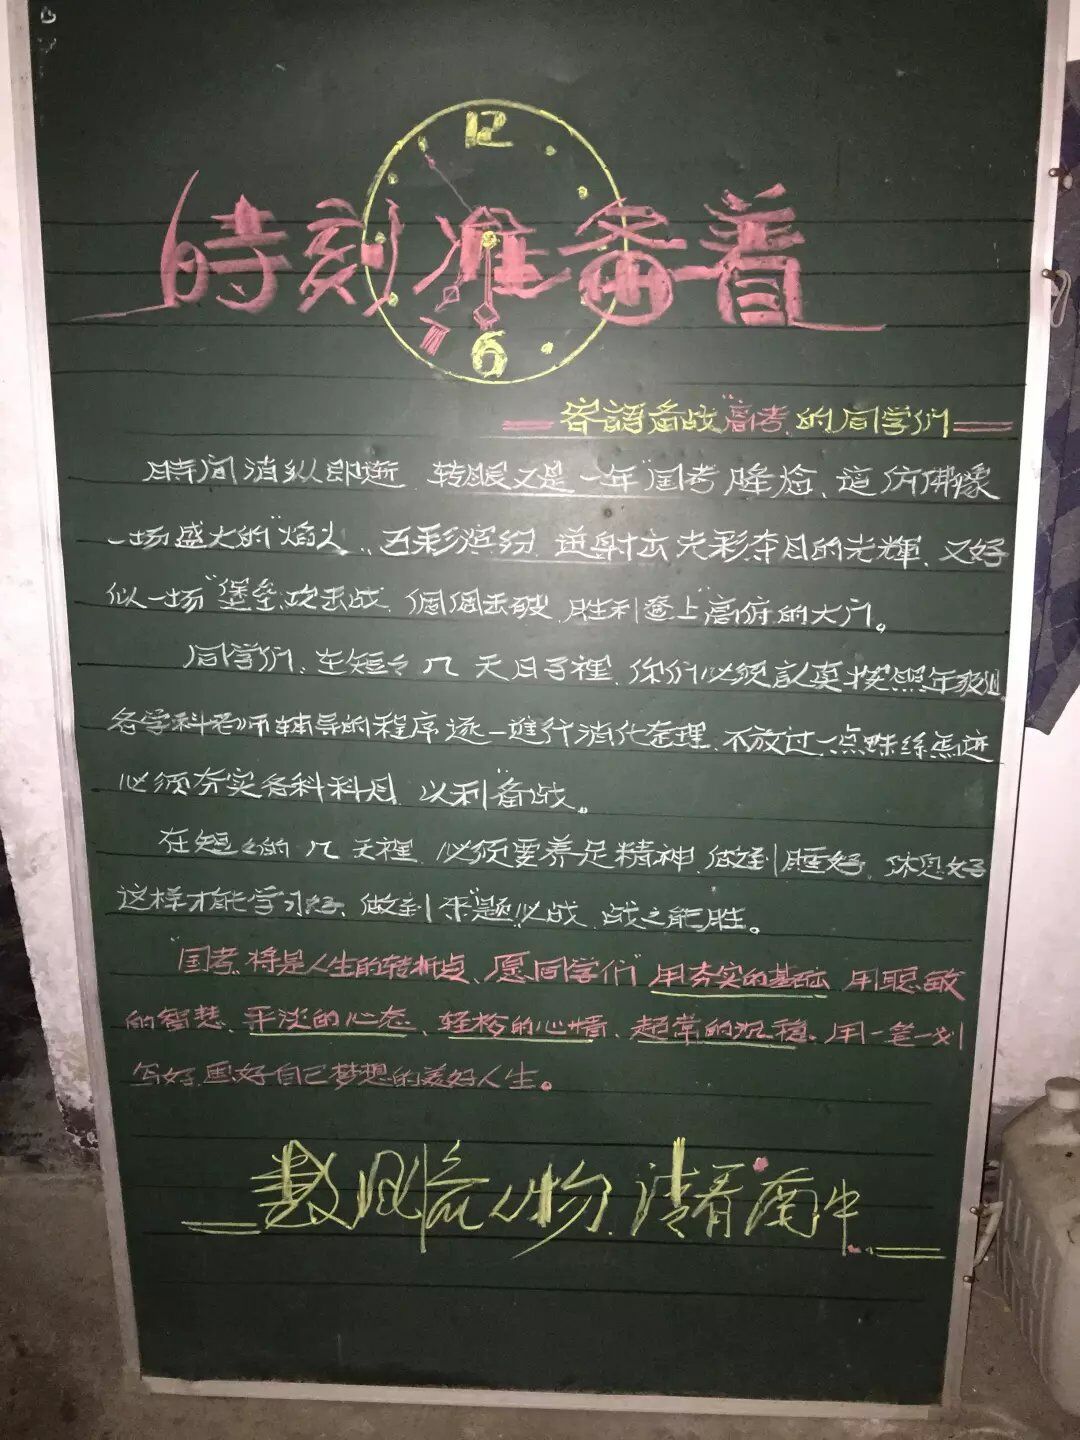 12
時刻准备着
6
寄語备战"高考"的同学们
時间消纵即逝、转眼又是一年"国考"降临、這仿佛像
一场盛大的"焰火"、五彩滨纷、迸射出光彩夺目的光輝、又好
似一场"堡垒"攻击战、個個击破、胜利登上"高府的大门。
同学们、在短々几天日子裡、你们必须認真按照年级组
各学科老师辅导的程序逐一進行消化整理、不放过一点蛛丝馬迹
必须夯实各科科目、以利"备战。
在短々的几天裡、必须要养足精神、做到睡好、休息好
这样才能学习好、做到"来"題"必战、战之能胜。
"国考"将是人生的转折点、愿同学们"用夯实的基础、用聪敏
的智慧、平淡的心态、轻松的心情、超常的沉稳。用一笔一划
写好、画好自己梦想的美好人生。
数风流人物、请看南中